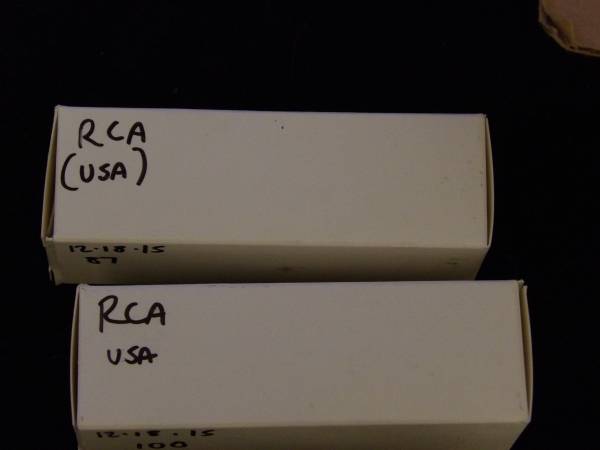 RCA
(USA)
12-18-15
87
RCA
USA
12-18-15
100